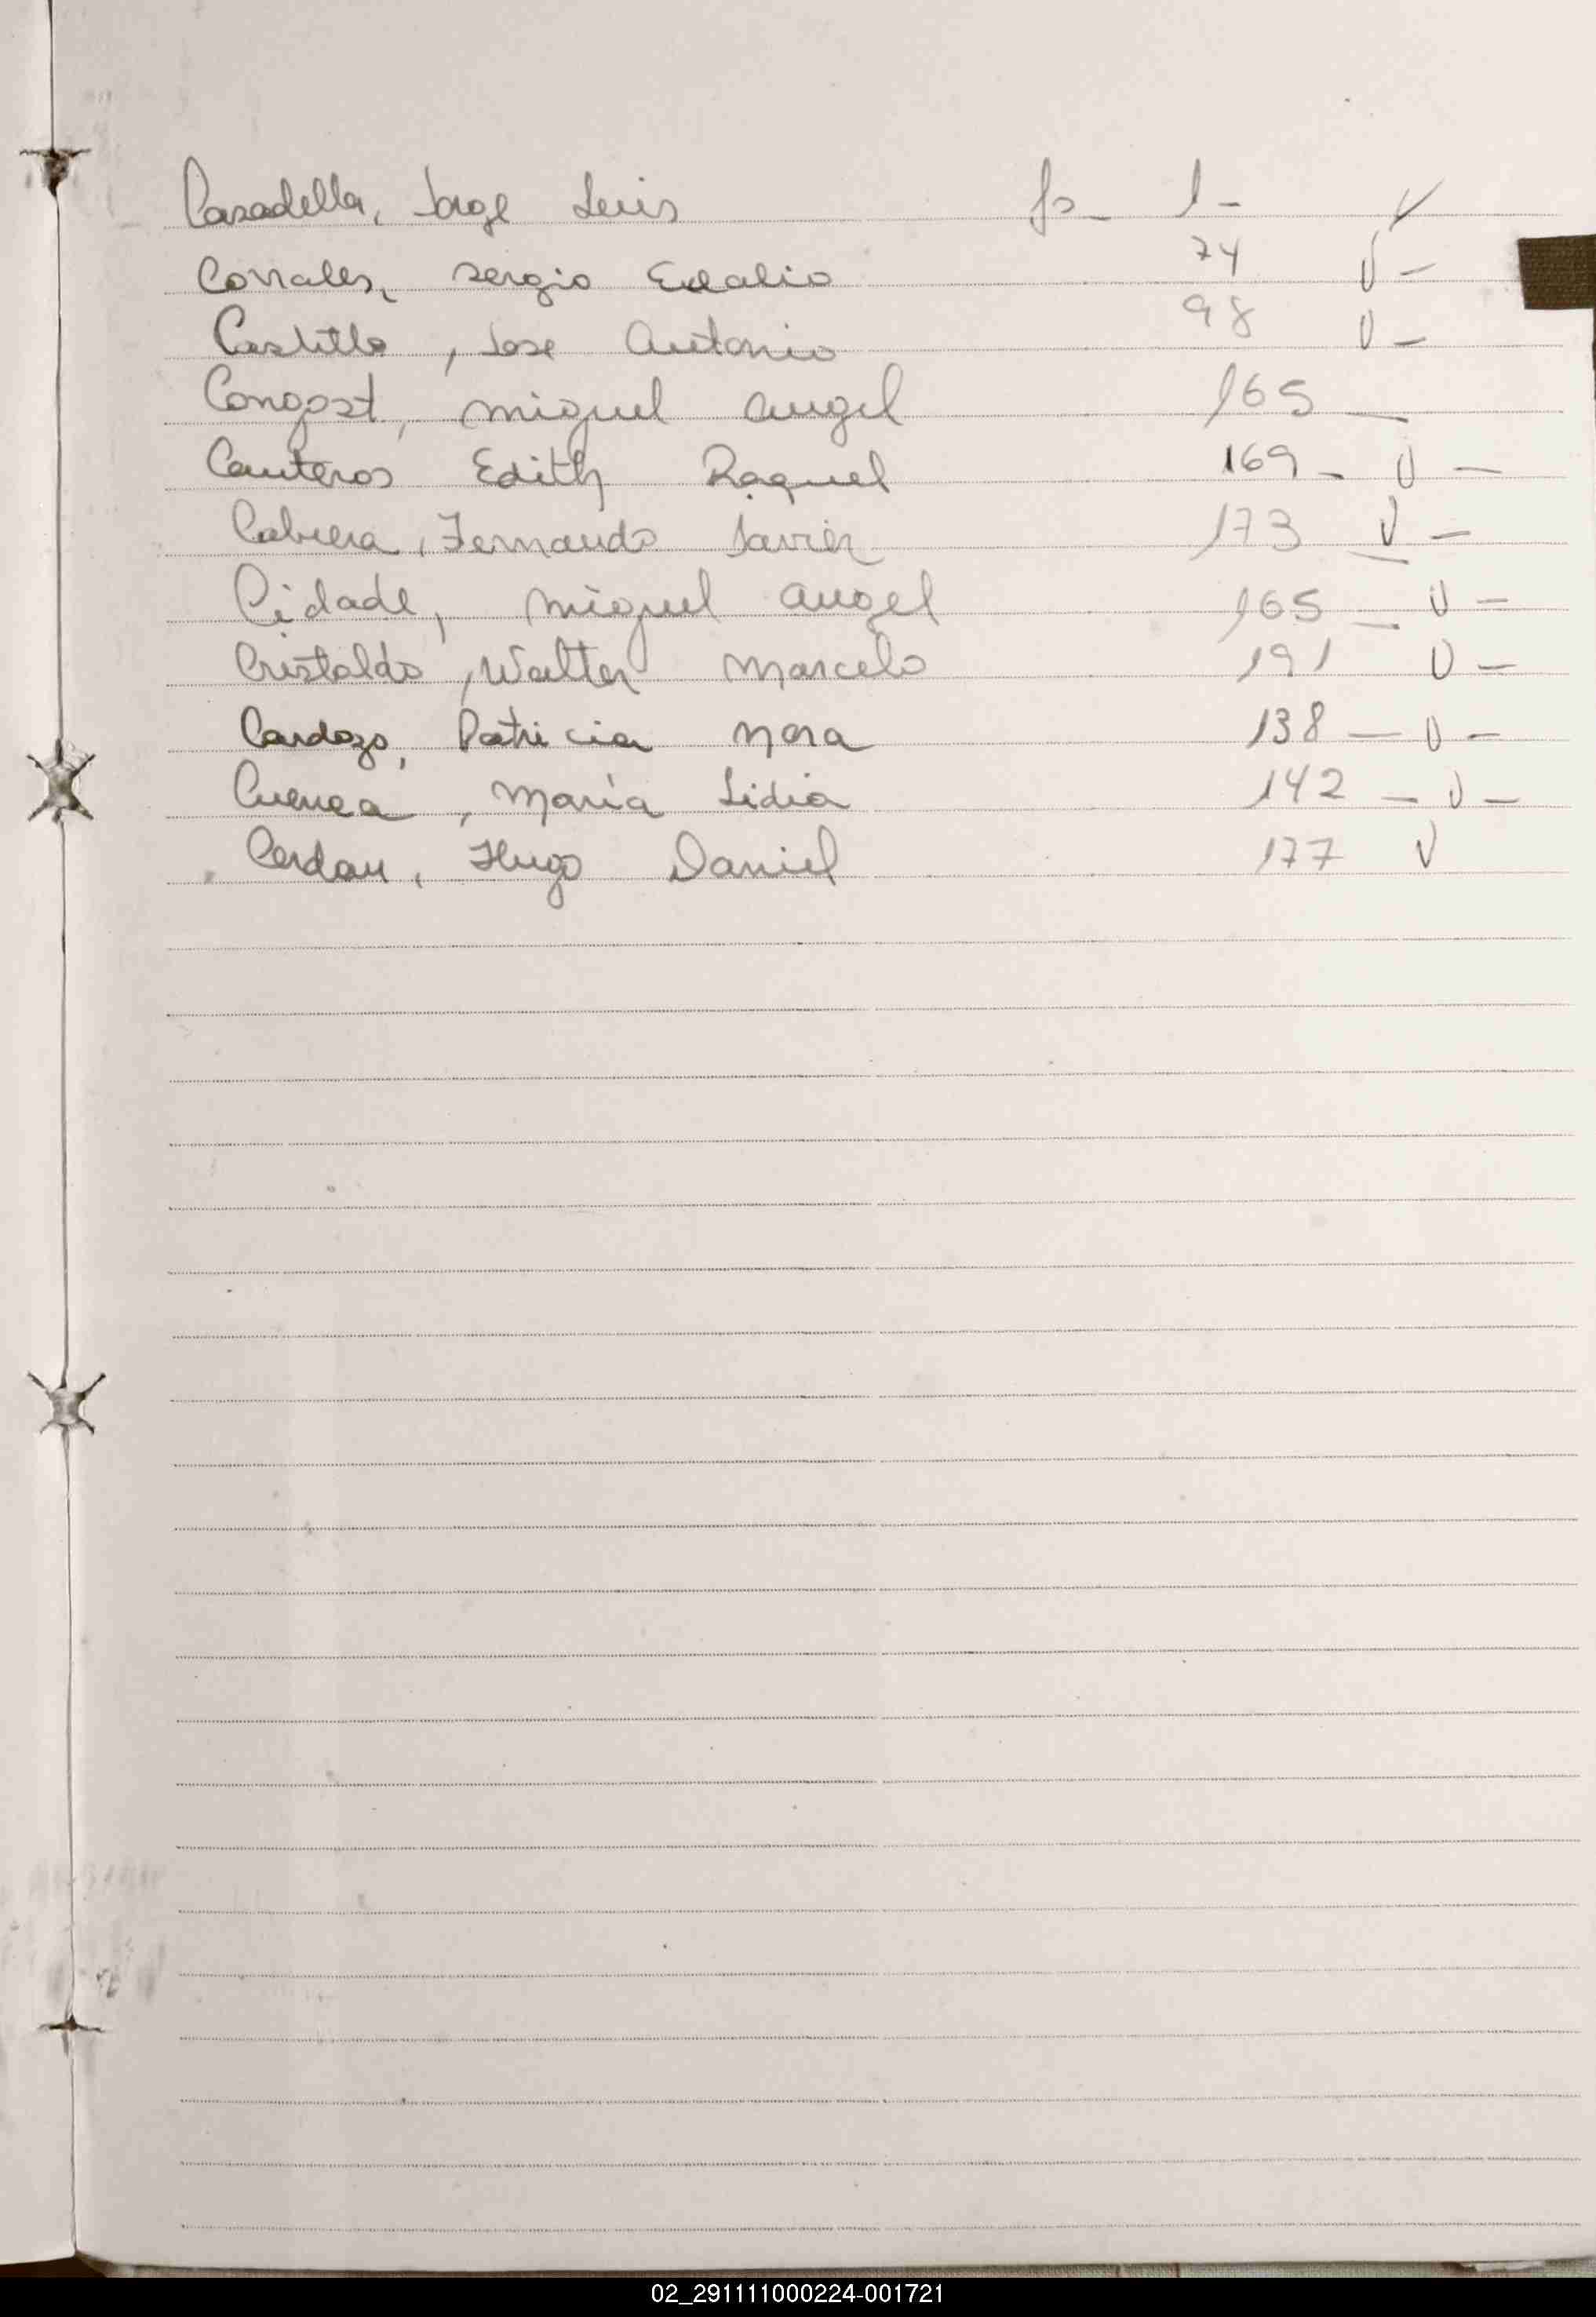 Casadella, Jorge Luis fs- 1- ✓
Corrales, Sergio Eulalio 74 V -
Castillo, Jose Antonio 98 V -
Congost, Miguel Angel 165 -
Canteros Edith Raquel 169 - V -
Cabrera, Fernando Javier 173 V -
Cidade, Miguel Angel 165 - V -
Cristaldo, Walter Marcelo 191 V -
Cardozo, Patricia Nora 138 - V -
Cuenca, María Lidia 142 - V -
Cerdan, Hugo Daniel 177 V
02_291111000224-001721